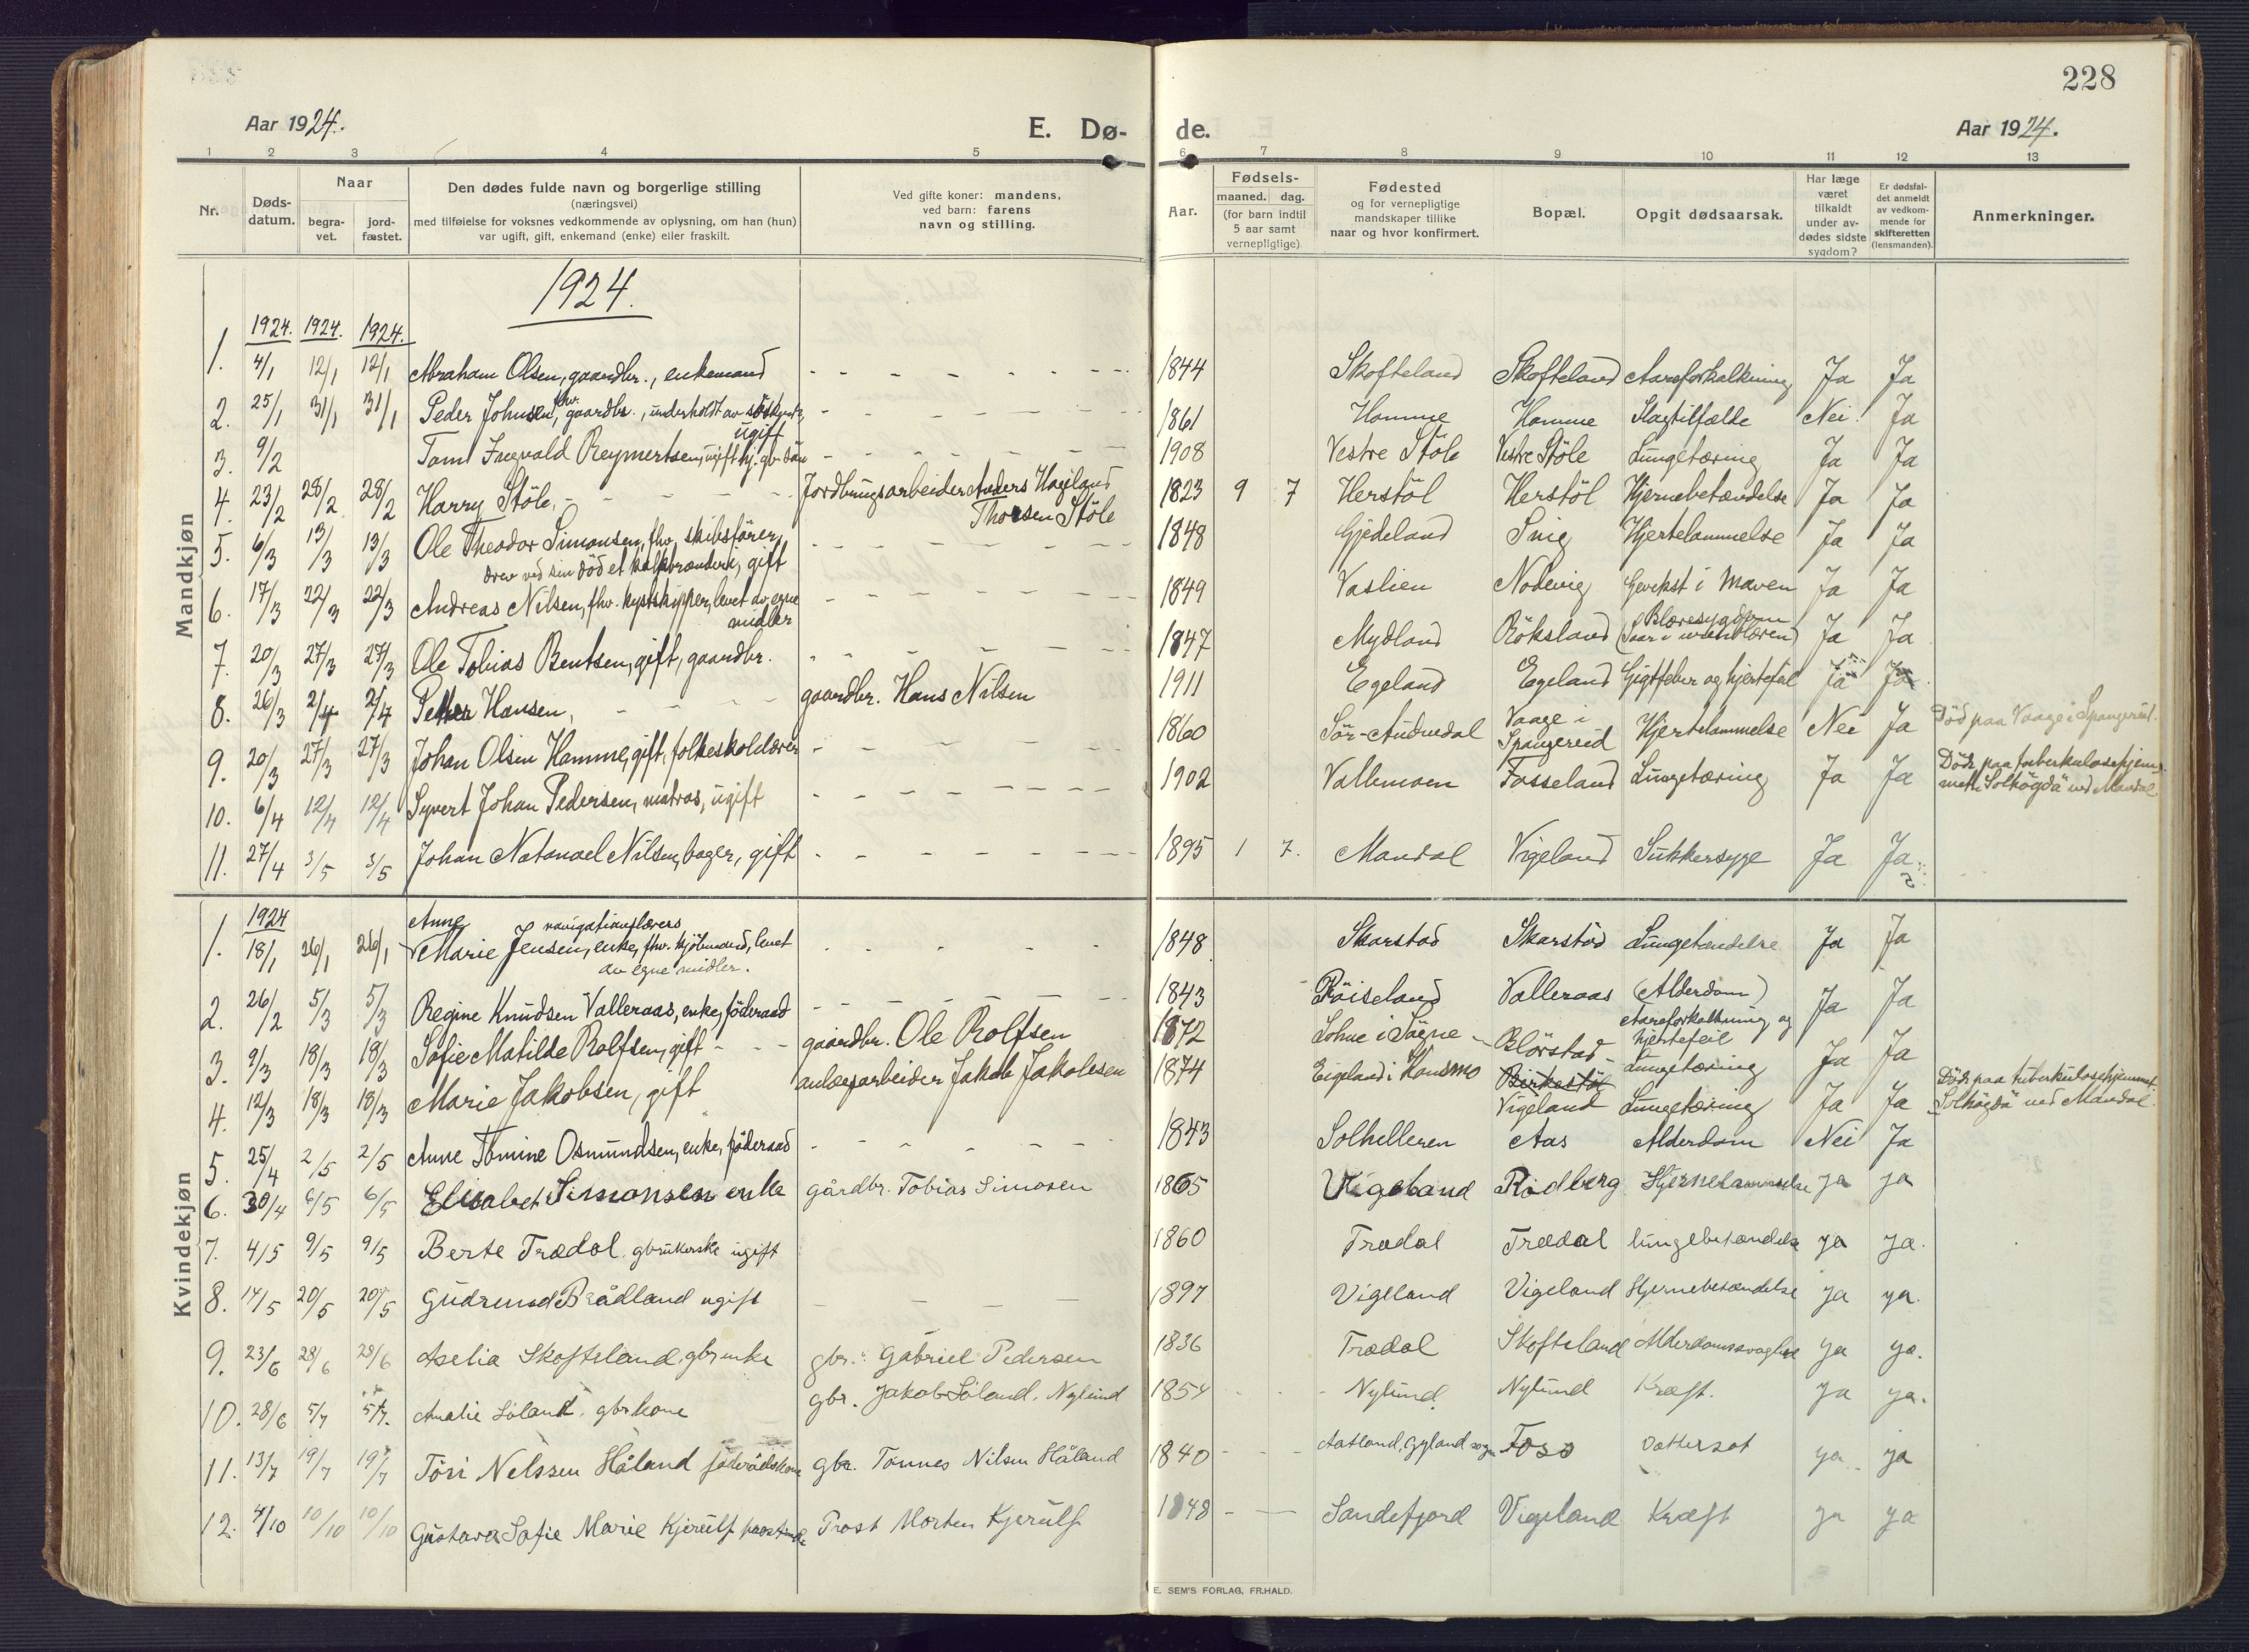 228
Aar 1924.
E. Dø-
de.
Aar 1924.
1 2 3 4 5 6 7 8 9 10 11 12 13
Nr.
Døds-
datum.
Naar
begra-
vet.
jord-
fæstet.
Den dødes fulde navn og borgerlige stilling
(næringsvei)
med tilføielse for voksnes vedkommende av oplysning, om han (hun)
var ugift, gift, enkemand (enke) eller fraskilt.
Ved gifte koner: mandens,
ved barn: farens
navn og stilling.
Aar.
Fødsels-
maaned. dag.
(for barn indtil
5 aar samt
vernepligtige)
Fødested
og for vernepligtige
mandskaper tillike
naar og hvor konfirmert.
Bopæl.
Opgit dødsaarsak.
Har læge
været
tilkaldt
under av-
dødes sidste
sygdom?
Er dødsfal-
det anmeldt
av vedkom-
mende for
skifteretten
(lensmanden).
Anmerkninger.
1924.
Mandkjøn
1924. 1924. 1924.
1. 4/1 12/1 12/1 Abraham Olsen, gaardbr., enkemand 1844 Skofteland Skofteland Aareforkalkning Ja Ja
2. 25/1 31/1 31/1 Peder Johnsen, fhv. gaardbr., underholdt av söskend, ugift 1861 Homme Homme Slagtilfælde Nei Ja
3. 9/2 Tom Ingvald Reymertsen, ugift hj. gbr. sön 1908 Vestre Stöle Vestre Stöle Lungetæring Ja Ja
4. 23/2 28/2 28/2 Harry Stöle, Jordbrugsarbeider Anders Hageland Thorsen Stöle 1823 9 7 Herstöl Herstöl Hjernebetændelse Ja Ja
5. 6/3 13/3 13/3 Ole Theodor Simonsen, fhv. skibsförer, drev ved sin död et kalkbrænderi, gift 1848 Gjedeland Snig Hjertelammelse Ja Ja
6. 17/3 22/3 22/3 Andreas Nilsen, fhv. kystskipper, levet av egne midler 1849 Vaslien Nodevig Gevekst i maven Ja Ja
7. 20/3 27/3 27/3 Ole Tobias Bentsen, gift, gaardbr. 1847 Mydland Röksland Blæresygdom (Saar i urinblæren) Ja Ja
8. 26/3 2/4 2/4 Petter Hansen, gaardbr. Hans Nilsen 1911 Egeland Egeland Gigtfeber og hjertefeil Ja Ja
9. 20/3 27/3 27/3 Johan Olsen Homme, gift, folkeskolelærer 1860 Sör-Audnedal Vaage i Spangereid Hjertelammelse Nei Ja Död paa Vaage i Spangereid.
10. 6/4 12/4 12/4 Syvert Johan Pedersen, matros, ugift 1902 Vallemoen Fosseland Lungetæring Ja Ja Döde paa tuberkulosehjemmet "Solhögda" ved Mandal.
11. 27/4 3/5 3/5 Johan Natanael Nilsen, bager, gift 1895 1 7. Mandal Vigeland Sukkersyge Ja Ja
Kvindekjøn
1924
1. 18/1 26/1 26/1 Anne Marie Jensen, enke, fhv. navigationslærers kjöbmand, levet av egne midler. 1848 Skarstad Skarstad Lungebetændelse Ja Ja
2. 26/2 5/3 5/3 Regine Knudsen Valleraas, enke, föderaad 1843 Röiseland Valleraas (Alderdom) Aareforkalkning og hjertefeil Ja Ja
3. 9/3 18/3 18/3 Sofie Matilde Rolfsen, gift gaardbr. Ole Rolfsen 1872 Lohne i Sögne Blörstad Lungetæring Ja Ja
4. 12/3 18/3 18/3 Marie Jakobsen, gift anlægsarbeider Jakob Jakobsen 1874 Eigeland i Konsmo Birkestöl Vigeland Lungetæring Ja Ja Döde paa tuberkulosehjemmet "Solhögda" ved Mandal.
5. 25/4 2/5 2/5 Anne Tomine Osmundsen, enke, föderaad 1843 Solhelleren Aas Alderdom Nei Ja
6. 30/4 6/5 6/5 Elisabet Simonsen enke gårdbr. Tobias Simosen 1865 Vigeland Rödberg Hjernelammelse ja ja
7. 4/5 9/5 9/5 Berte Trædal gbrukerske ugift 1860 Trædal Trædal lungebetændelse ja ja.
8. 14/5 20/5 20/5 Gudrund Brådland ugift 1897 Vigeland Vigeland Hjernebetændelse ja ja.
9. 23/6 28/6 28/6 Aselia Skofteland gbr enke gbr. Gabriel Pedersen 1836 Trædal Skofteland Alderdomssvaghet ja ja.
10. 28/6 5/7 5/7. Amalie Löland. gbr kone gbr. Jakob Löland. Nylund 1854 Nylund Nylund Kræft. ja ja.
11. 13/7 19/7 19/7 Töri Nelssen Håland föderådskone gbr. Tönnes Nilsen Håland 1840 Aatland, Gyland sogn Foss ja ja
12. 4/10 10/10 10/10 Gustava Sofie Marie Kjerulf prostinde Prost Morten Kjerulf 1848 Sandefjord Vigeland Kræft ja ja
E. SEM'S FORLAG, FR.HALD.